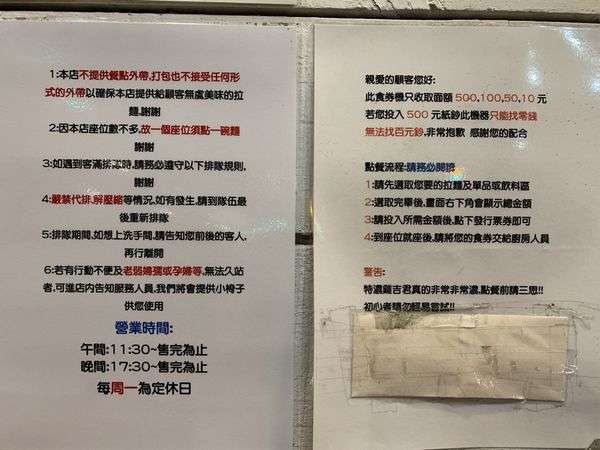 1:本店不提供餐點外帶,打包也不接受任何形
式的外帶以確保本店提供給顧客無虞美味的拉
麵,謝謝
2:因本店座位數不多,故一個座位須點一碗麵
謝謝
3:如遇到客滿排隊時,請務必遵守以下排隊規則,
謝謝
4:嚴禁代排,解壓縮等情況,如有發生,請到隊伍最
後重新排隊
5:排隊期間,如想上洗手間,請告知您前後的客人,
再行離開
6:若有行動不便及老弱婦孺或孕婦等,無法久站
者,可進店內告知服務人員,我們將會提供小椅子
供您使用
營業時間:
午間:11:30~售完為止
晚間:17:30~售完為止
每周一為定休日
親愛的顧客您好:
此食券機只收取面額 500,100,50,10 元
若您投入 500 元紙鈔此機器只能找零錢
無法找百元鈔,非常抱歉 感謝您的配合
點餐流程:請務必閱讀
1:請先選取您要的拉麵及單品或飲料區
2:選取完畢後,畫面右下角會顯示總金額
3:請投入所需金額後,點下發行票券即可
4:到座位就座後,請將您的食券交給廚房人員
警告:
特濃雞吉君真的非常非常濃,點餐前請三思!!
初心者請勿輕易嘗試!!